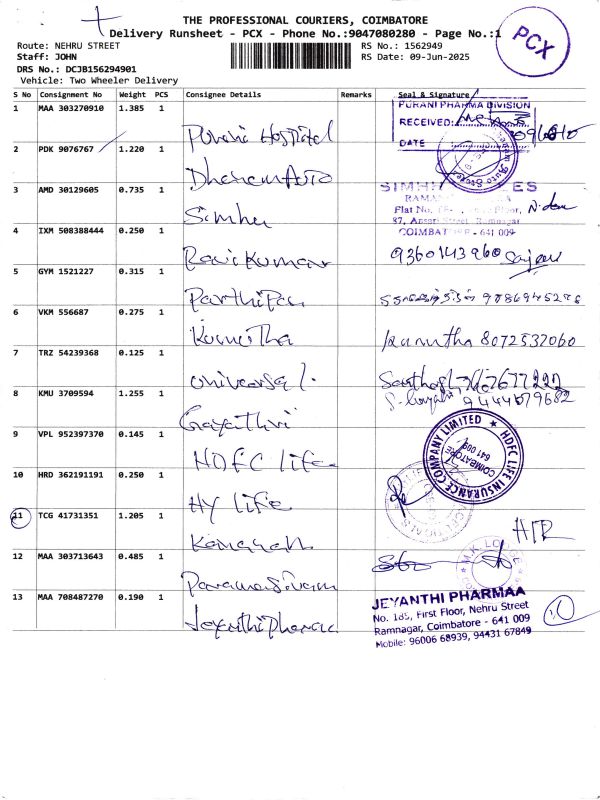 THE PROFESSIONAL COURIERS, COIMBATORE
Delivery Runsheet - PCX - Phone No.:9047080280 - Page No.:1
PCX
Route: NEHRU STREET
RS No.: 1562949
Staff: JOHN
RS Date: 09-Jun-2025
DRS No.: DCJB156294901
Vehicle: Two Wheeler Delivery
S No Consignment No Weight PCS Consignee Details Remarks Seal & Signature
1 MAA 303270910 1.385 1 Purani Hospital
PURANI PHARMA DIVISION
RECEIVED:
DATE
2 PDK 9076767 1.220 1 Dhanam Auto
3 AMD 30129605 0.735 1 Simha
Flat No. Floor,
87, Ansari Street, Ramnagar
COIMBATORE - 641 009
4 IXM 508388444 0.250 1 Ravi Kumar 9360143960
5 GYM 1521227 0.315 1 Parthipan
6 VKM 556687 0.275 1 Kumutha Kumutha 8072537060
7 TRZ 54239368 0.125 1 Universal
8 KMU 3709594 1.255 1 Gayathri 9444679682
9 VPL 952397370 0.145 1 HDFC life
HDFC LIFE INSURANCE COMPANY LIMITED
COIMBATORE
641 009
10 HRD 362191191 0.250 1 Hy life
11 TCG 41731351 1.205 1
12 MAA 303713643 0.485 1 Paramasivam
M.K LODGE
13 MAA 708487270 0.190 1 Jeyanthi Pharma
JEYANTHI PHARMAA
No. 185, First Floor, Nehru Street
Ramnagar, Coimbatore - 641 009
Mobile: 96006 68939, 94431 67849